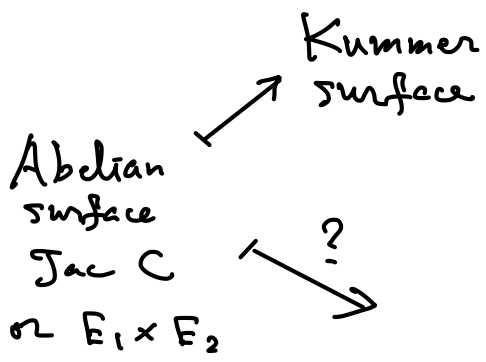 Kummer
surface
Abelian
surface
Jac C
?
or E₁ × E₂